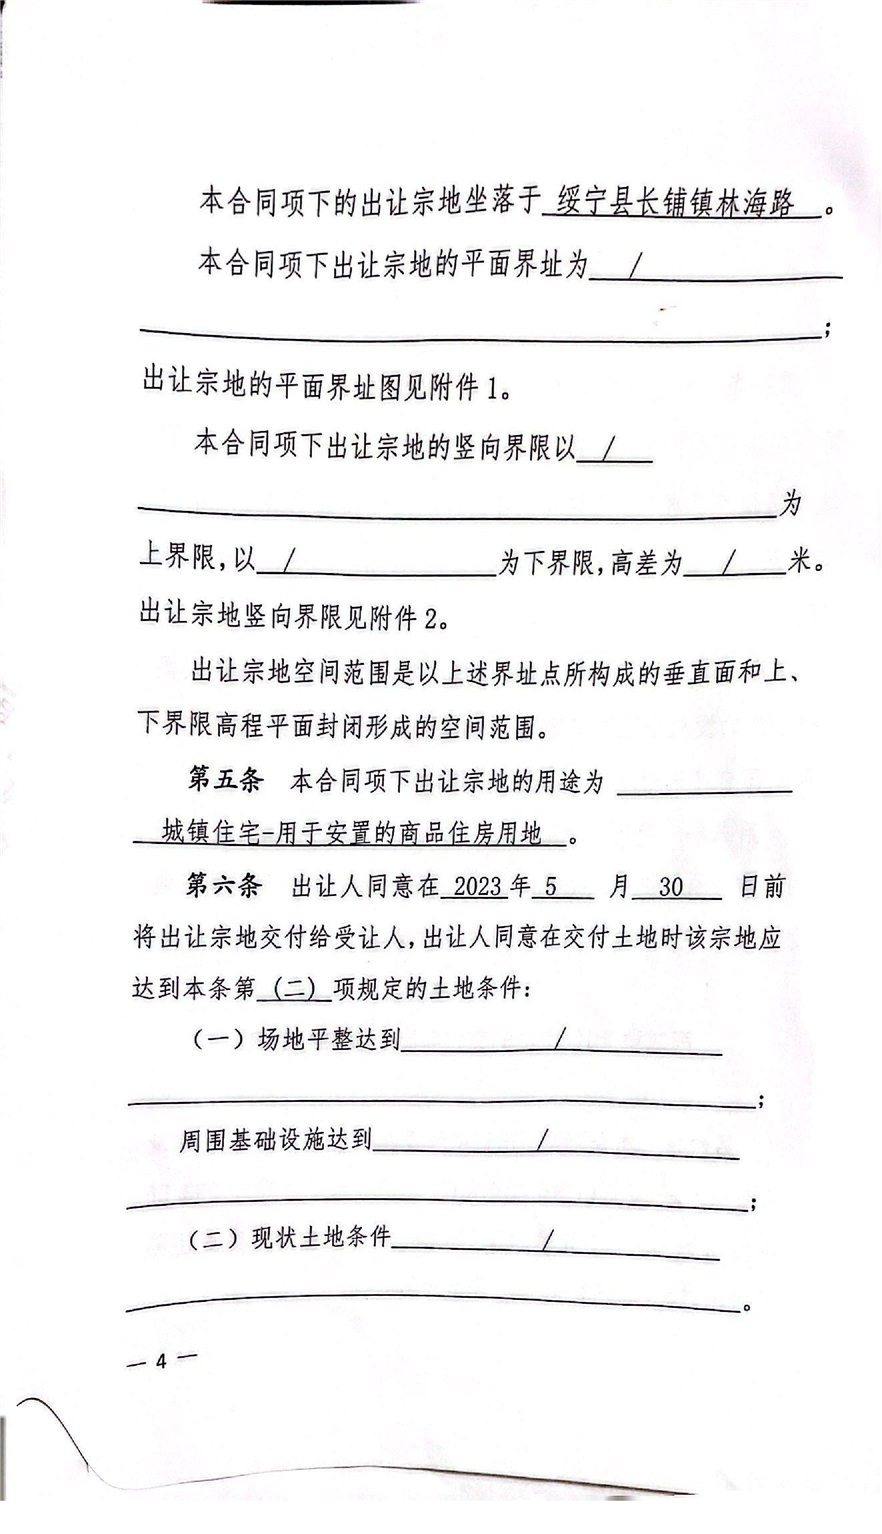 本合同项下的出让宗地坐落于 绥宁县长铺镇林海路 。
本合同项下出让宗地的平面界址为 /
;
出让宗地的平面界址图见附件1。
本合同项下出让宗地的竖向界限以 /
为
上界限,以 / 为下界限,高差为 / 米。
出让宗地竖向界限见附件2。
出让宗地空间范围是以上述界址点所构成的垂直面和上、
下界限高程平面封闭形成的空间范围。
第五条 本合同项下出让宗地的用途为
城镇住宅-用于安置的商品住房用地 。
第六条 出让人同意在 2023 年 5 月 30 日前
将出让宗地交付给受让人,出让人同意在交付土地时该宗地应
达到本条第 (二) 项规定的土地条件:
(一)场地平整达到 /
;
周围基础设施达到 /
;
(二)现状土地条件 /
。
— 4 —